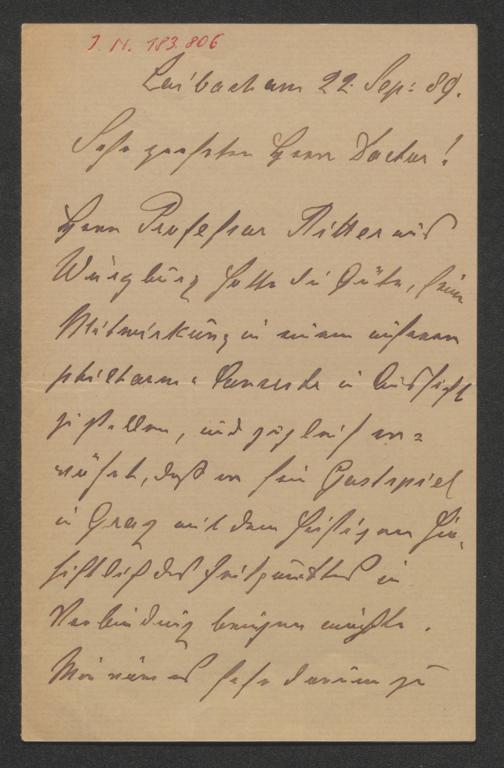 J. N. 183.806
Laibach am 22. Sep: 89.
Sehr geehrter Herr Doctor!
Herr Professor Ritter aus
Würzburg hatte die Güte, seine
Mitwirkung in einem unserer
philharm: Concerte in Aussicht
zu stellen, und zugleich er=
wähnt, daß er sein Gastspiel
in Graz mit dem hiesigen hin-
sichtlich des Zeitpunktes in
Verbindung bringen möchte.
Mir wäre es sehr darum zu